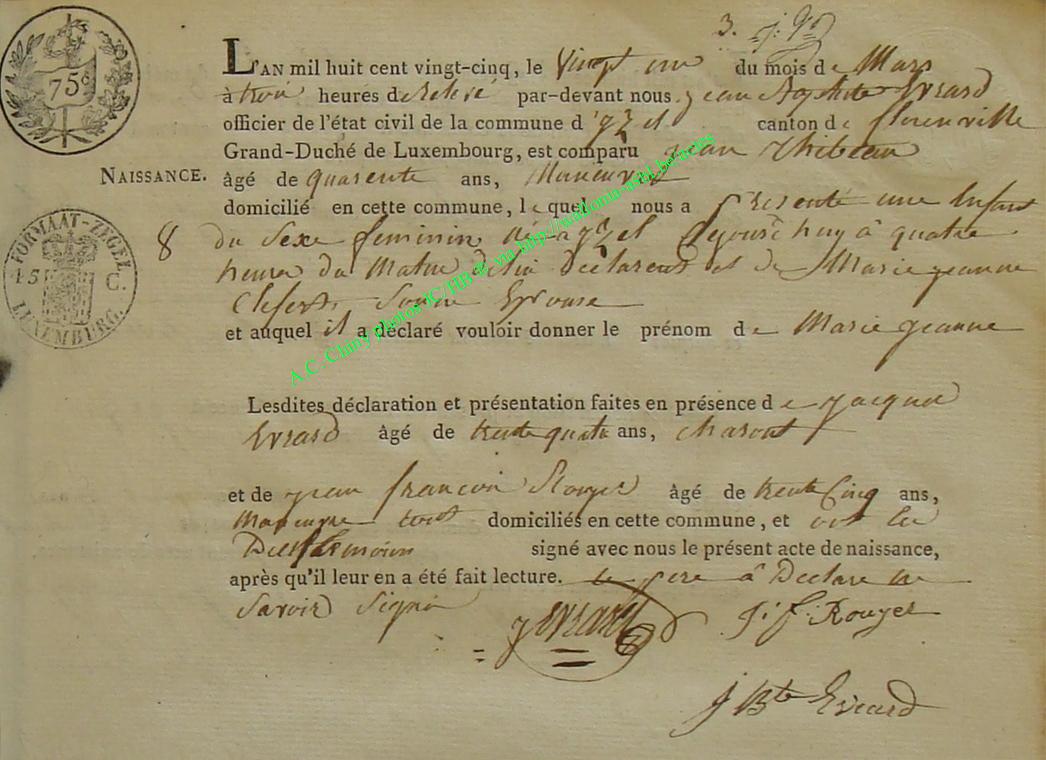 3.
75 c
L'AN mil huit cent vingt-cinq, le Vingt une du mois de Mars
à trois heures de relevé par-devant nous jean Baptiste Evrard
officier de l'état civil de la commune d' izel canton de florenville
Grand-Duché de Luxembourg, est comparu jean Thibeau
NAISSANCE. âgé de quarente ans, Maneuvre
domicilié en cette commune, lequel nous a presenté une Enfant
FORMAAT-ZEGEL. 45 C. LUXEMBURG.
8 du Sexe feminin née a izel Dejourd'huy à quatre
heures du Matin de lui Declarent et de Marie jeanne
Clesers Sonne Epouse
et auquel il a déclaré vouloir donner le prénom de Marie jeanne
Lesdites déclaration et présentation faites en présence de jacque
Evrard âgé de trente quatre ans, charont
et de jean françois Rouyer âgé de trente Cinq ans,
Maneuvre tous domiciliés en cette commune, et ont les
Deux temoins signé avec nous le présent acte de naissance,
après qu'il leur en a été fait lecture. Le pere à Declare ne
Savoir Signer
j Evrard J: f: Rouyer
J Bte Evrard
A.C. Chiny photos JC/HB © via http://wallonia-ww1.be/actes